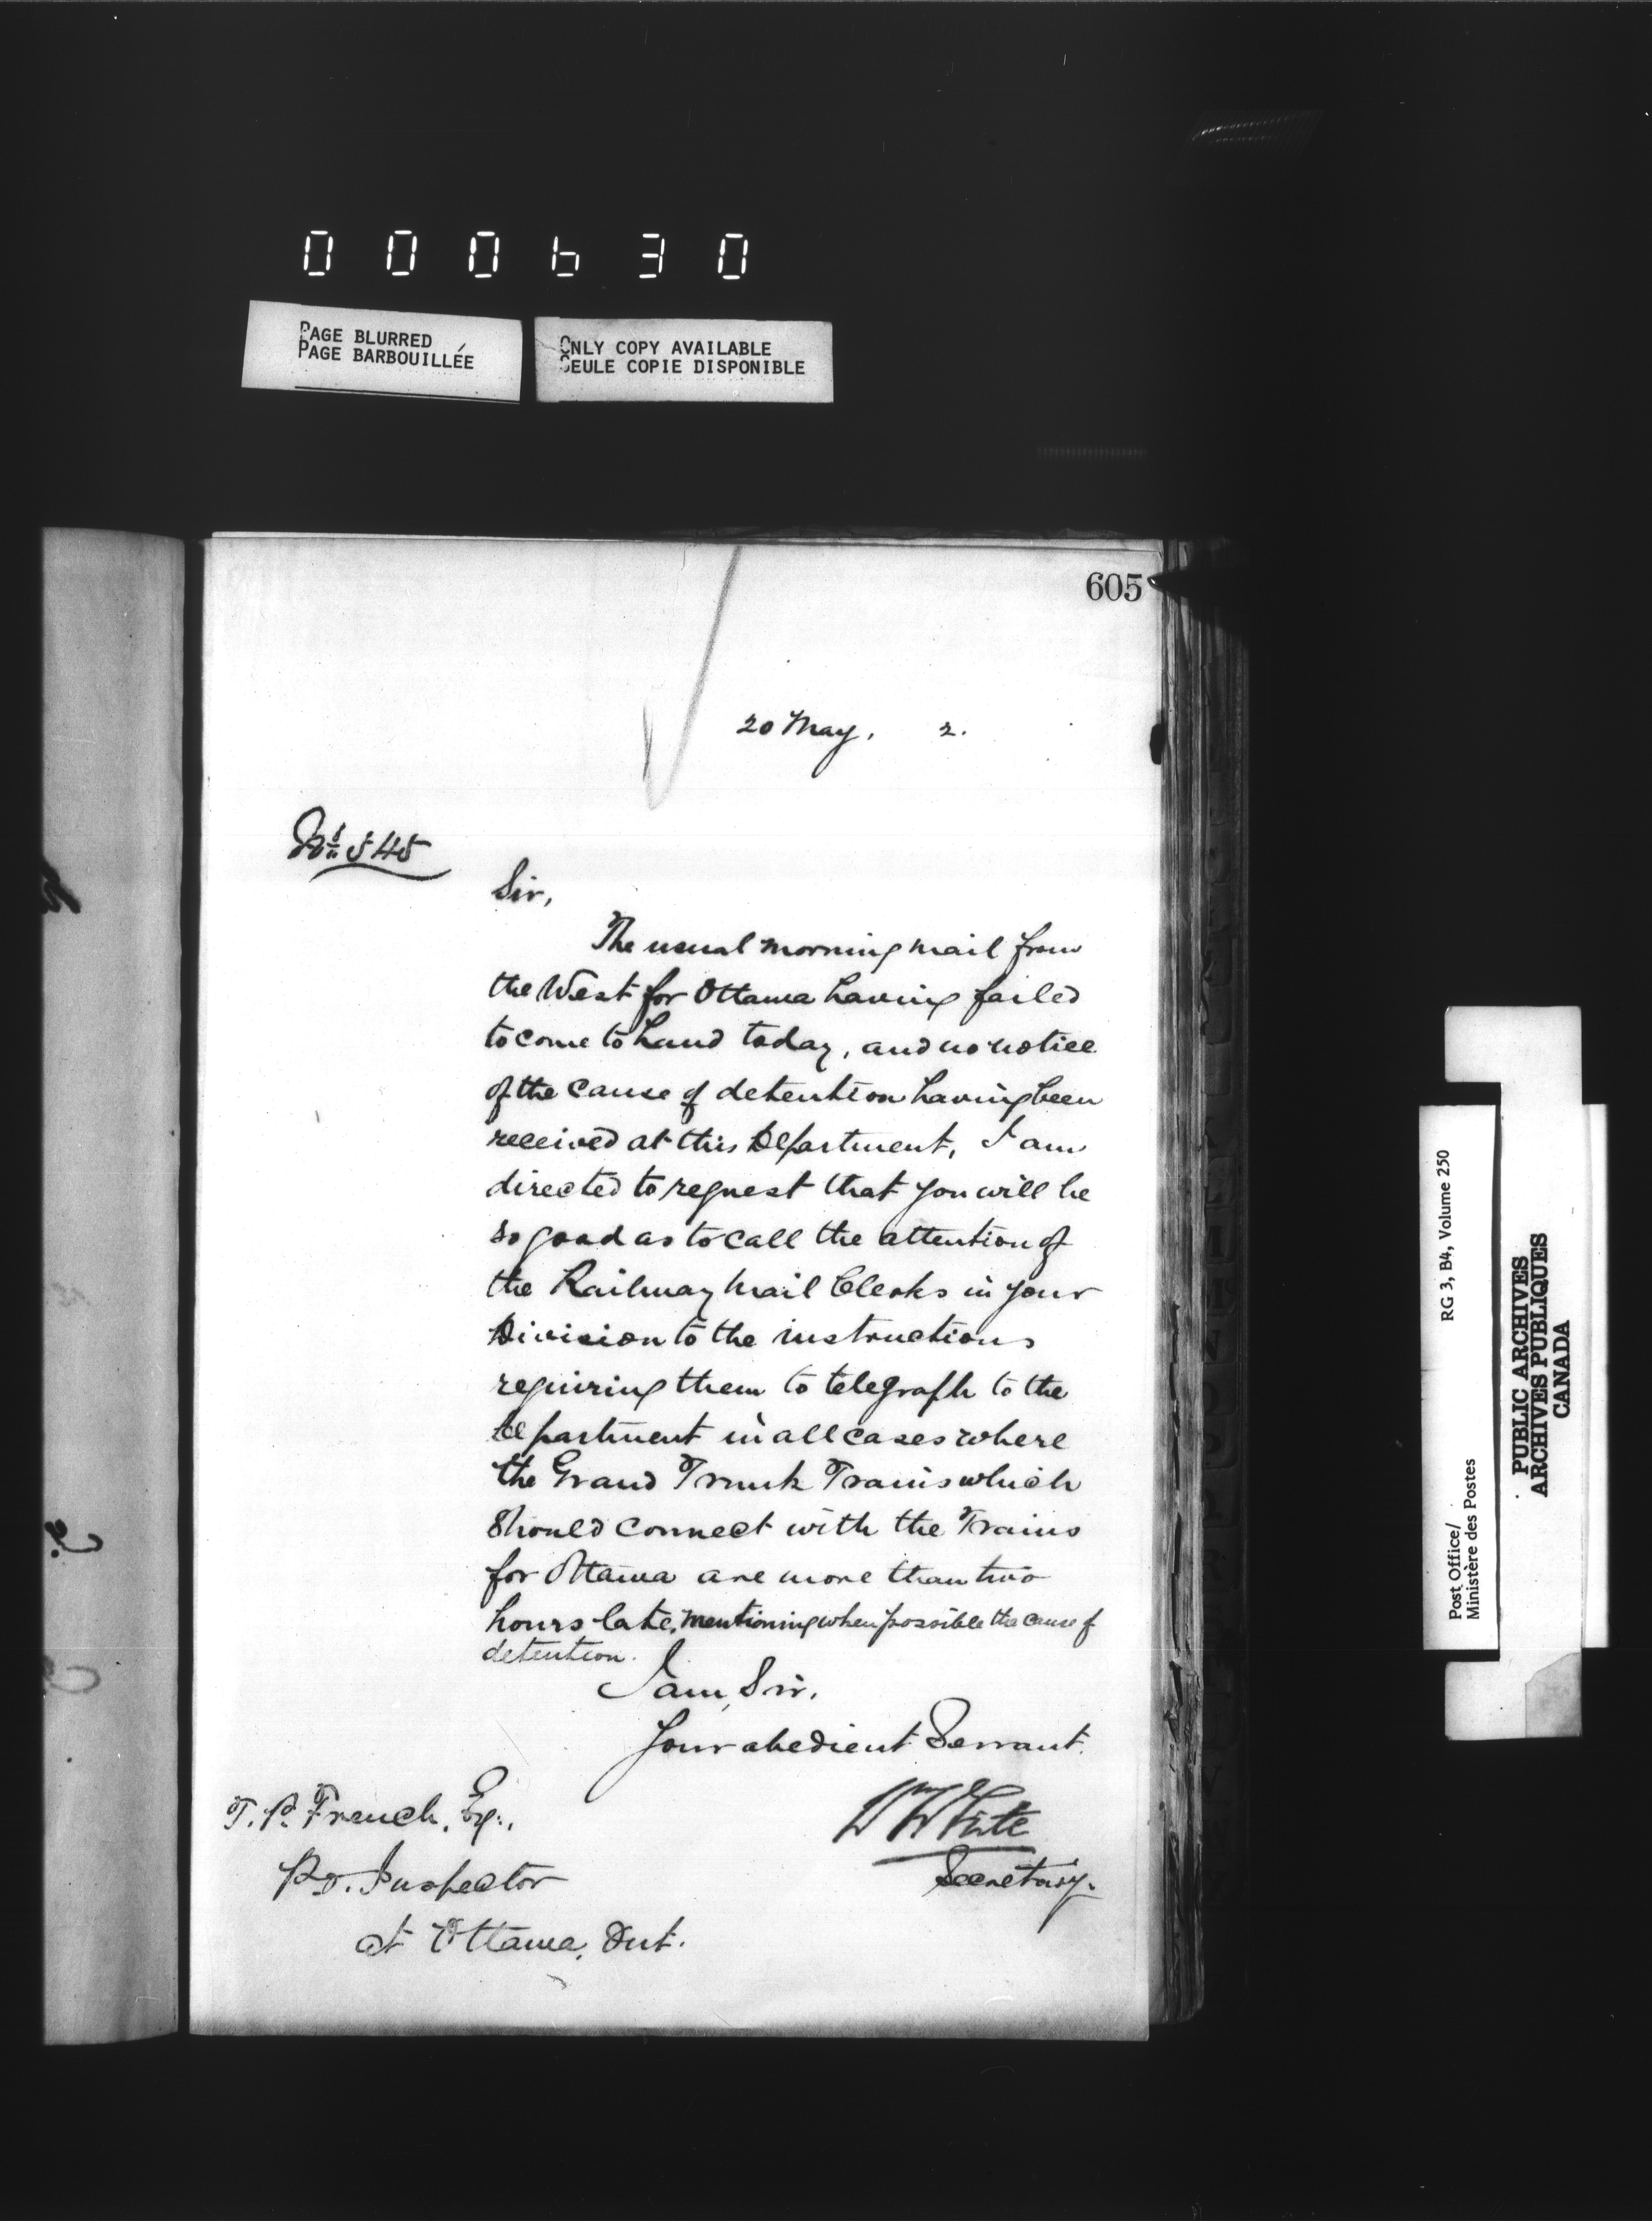 000630
PAGE BLURRED
PAGE BARBOUILLÉE
ONLY COPY AVAILABLE
SEULE COPIE DISPONIBLE
605
20 May, 2.
No. 545
Sir,
The usual morning mail from
the West for Ottawa having failed
to come to hand today, and no notice
of the cause of detention having been
received at this Department, I am
directed to request that you will be
so good as to call the attention of
the Railway Mail Clerks in your
Division to the instructions
requiring them to telegraph to the
Department in all cases where
the Grand Trunk Trains which
should connect with the Trains
for Ottawa are more than two
hours late, mentioning when possible the cause of
detention.
I am, Sir,
Your obedient Servant.
T. P. French, Esq.,
P.O. Inspector
at Ottawa, Ont.
Wm White
Secretary.
Post Office/
Ministère des Postes
RG 3, B4, Volume 250
PUBLIC ARCHIVES
ARCHIVES PUBLIQUES
CANADA